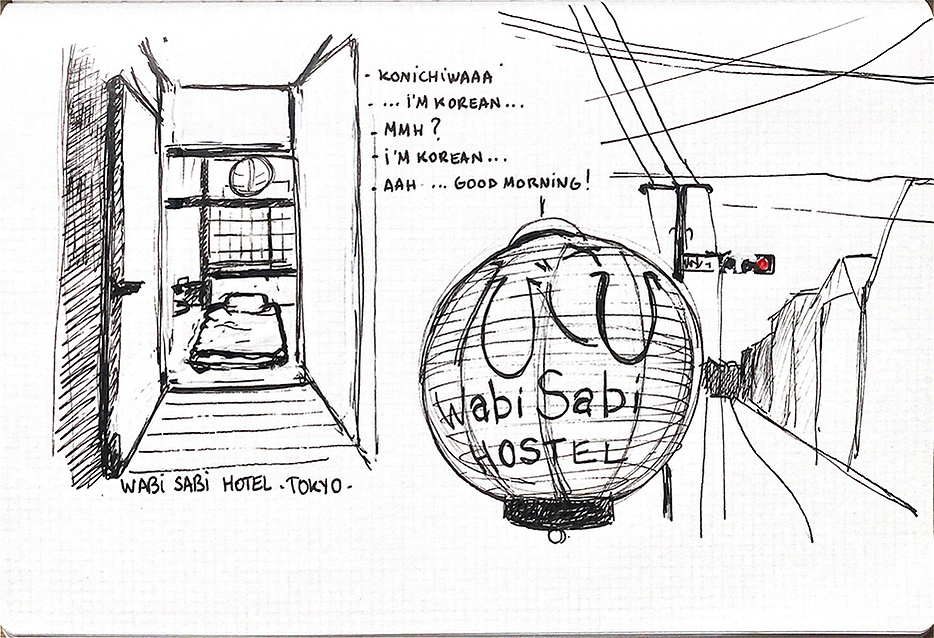 - KONICHIWAAA
- ... I'M KOREAN...
- MMH ?
- I'M KOREAN...
- AAH ... GOOD MORNING !
Wabi Sabi
HOSTEL
WABI SABI HOTEL . TOKYO -